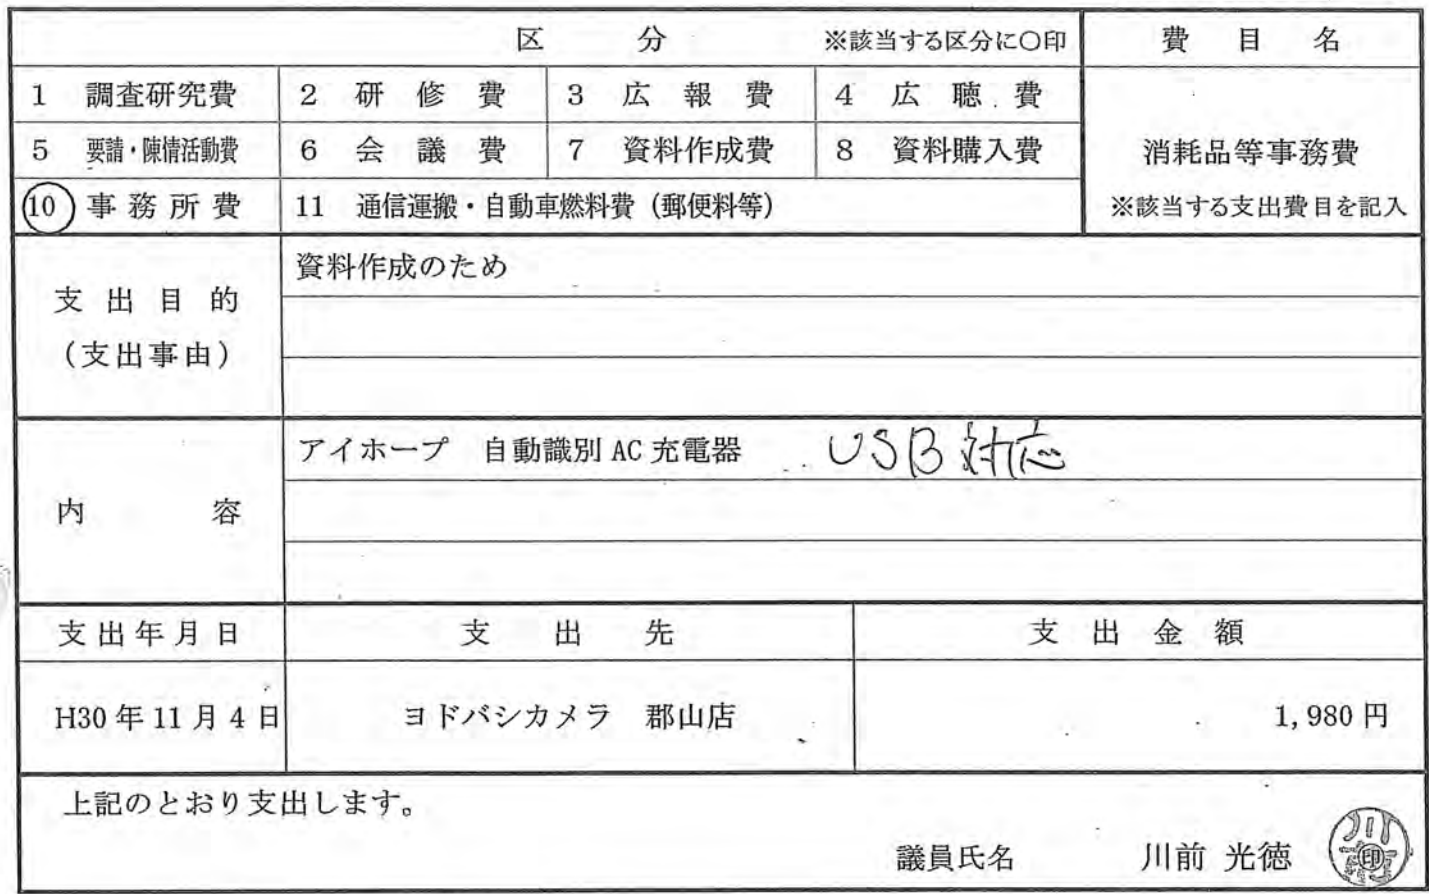 区 分 ※該当する区分に○印 費 目 名
1 調査研究費 2 研 修 費 3 広 報 費 4 広 聴 費
5 要請・陳情活動費 6 会 議 費 7 資料作成費 8 資料購入費 消耗品等事務費
10 事 務 所 費 11 通信運搬・自動車燃料費（郵便料等） ※該当する支出費目を記入
資料作成のため
支 出 目 的
（支出事由）
アイホープ 自動識別 AC 充電器 USB対応
内 容
支 出 年 月 日 支 出 先 支 出 金 額
H30 年 11 月 4 日 ヨドバシカメラ 郡山店 1,980 円
上記のとおり支出します。
議員氏名 川前 光徳 川前 印